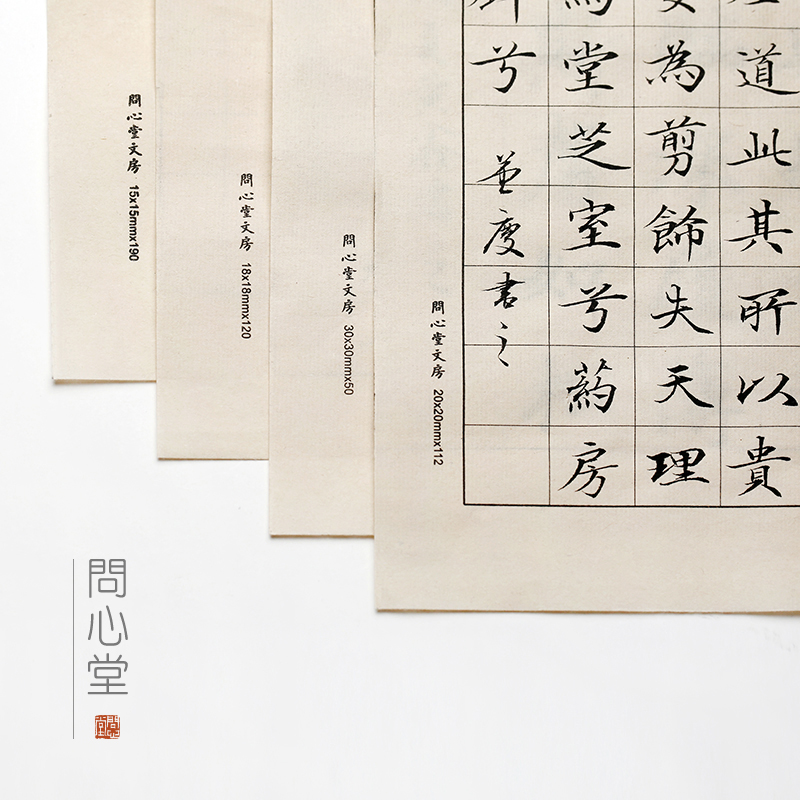 道此其所以貴
為剪飾失天理
堂芝室兮葯房
兮
並度書之
問心堂文房 20x20mmx112
問心堂文房 30x30mmx50
問心堂文房 18x18mmx120
問心堂文房 15x15mmx190
問心堂
問心堂